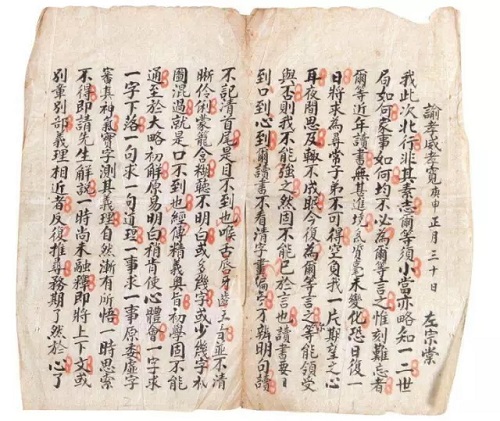 諭孝威孝寬 庚申正月三十日 左宗棠
我此次北行非其素志爾等須小當亦略知一二世
局如何家事如何均不必為爾等言之惟刻難忘者
爾等近年讀書無甚進境氣質毫未變化恐日復一
日將求為尋常子弟不可得空負我一片期望之心
耳夜間思及輒不成眠今復為爾等言之等能領受
與否則我不能強之然固不能已於言也讀書要目
到口到心到爾讀書不看清字畫偏旁不辨明句讀
不記清首尾是目不到也喉舌唇牙齒五音並不清
晰伶俐蒙籠含糊聽不明白或多幾字或少幾字祇
圖混過就是口不到也經傳精義奧旨初學固不能
通至於大略初解原易明白稍肯使心體會一字求
一字下落一句求一句道理一事求一事原委虛字
審其神氣實字測其義理自然漸有所悟一時思索
不得即請先生解說一時尚未融釋即將上下文或
別章別部義理相近者反復推尋務期了然於心了